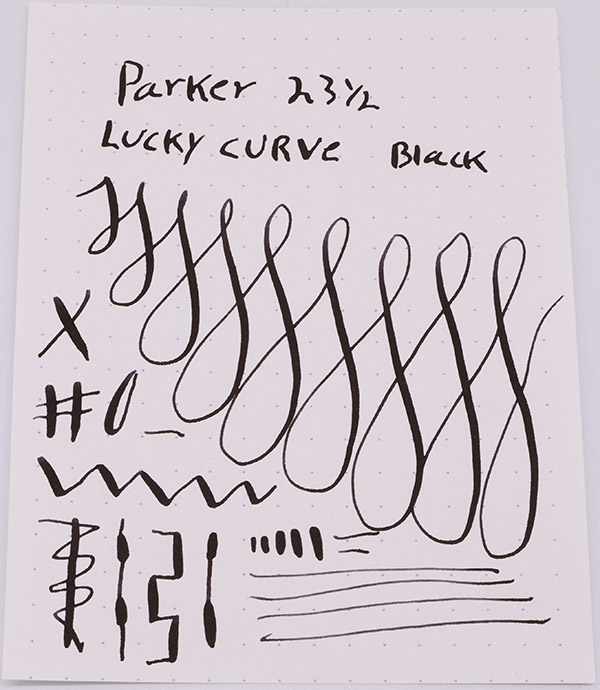 Parker 23½
Lucky Curve Black
X
#0_